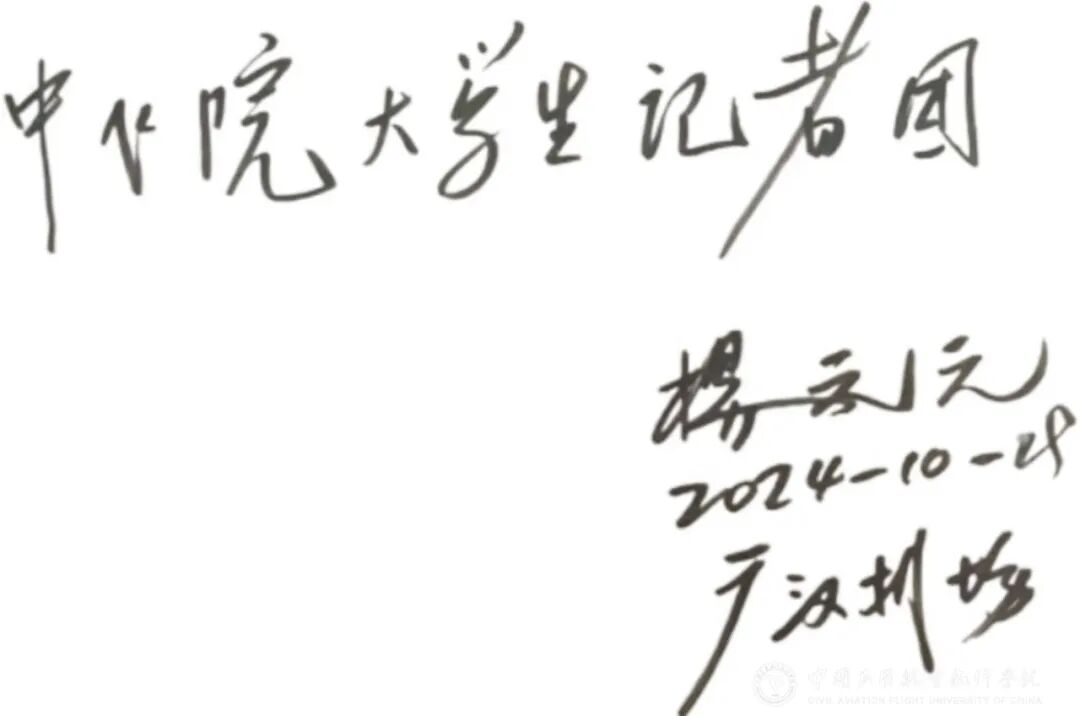 中飞院大学生记者团
楊元元
2024-10-28
广汉机场
中国民用航空飞行学院
CIVIL AVIATION FLIGHT UNIVERSITY OF CHINA